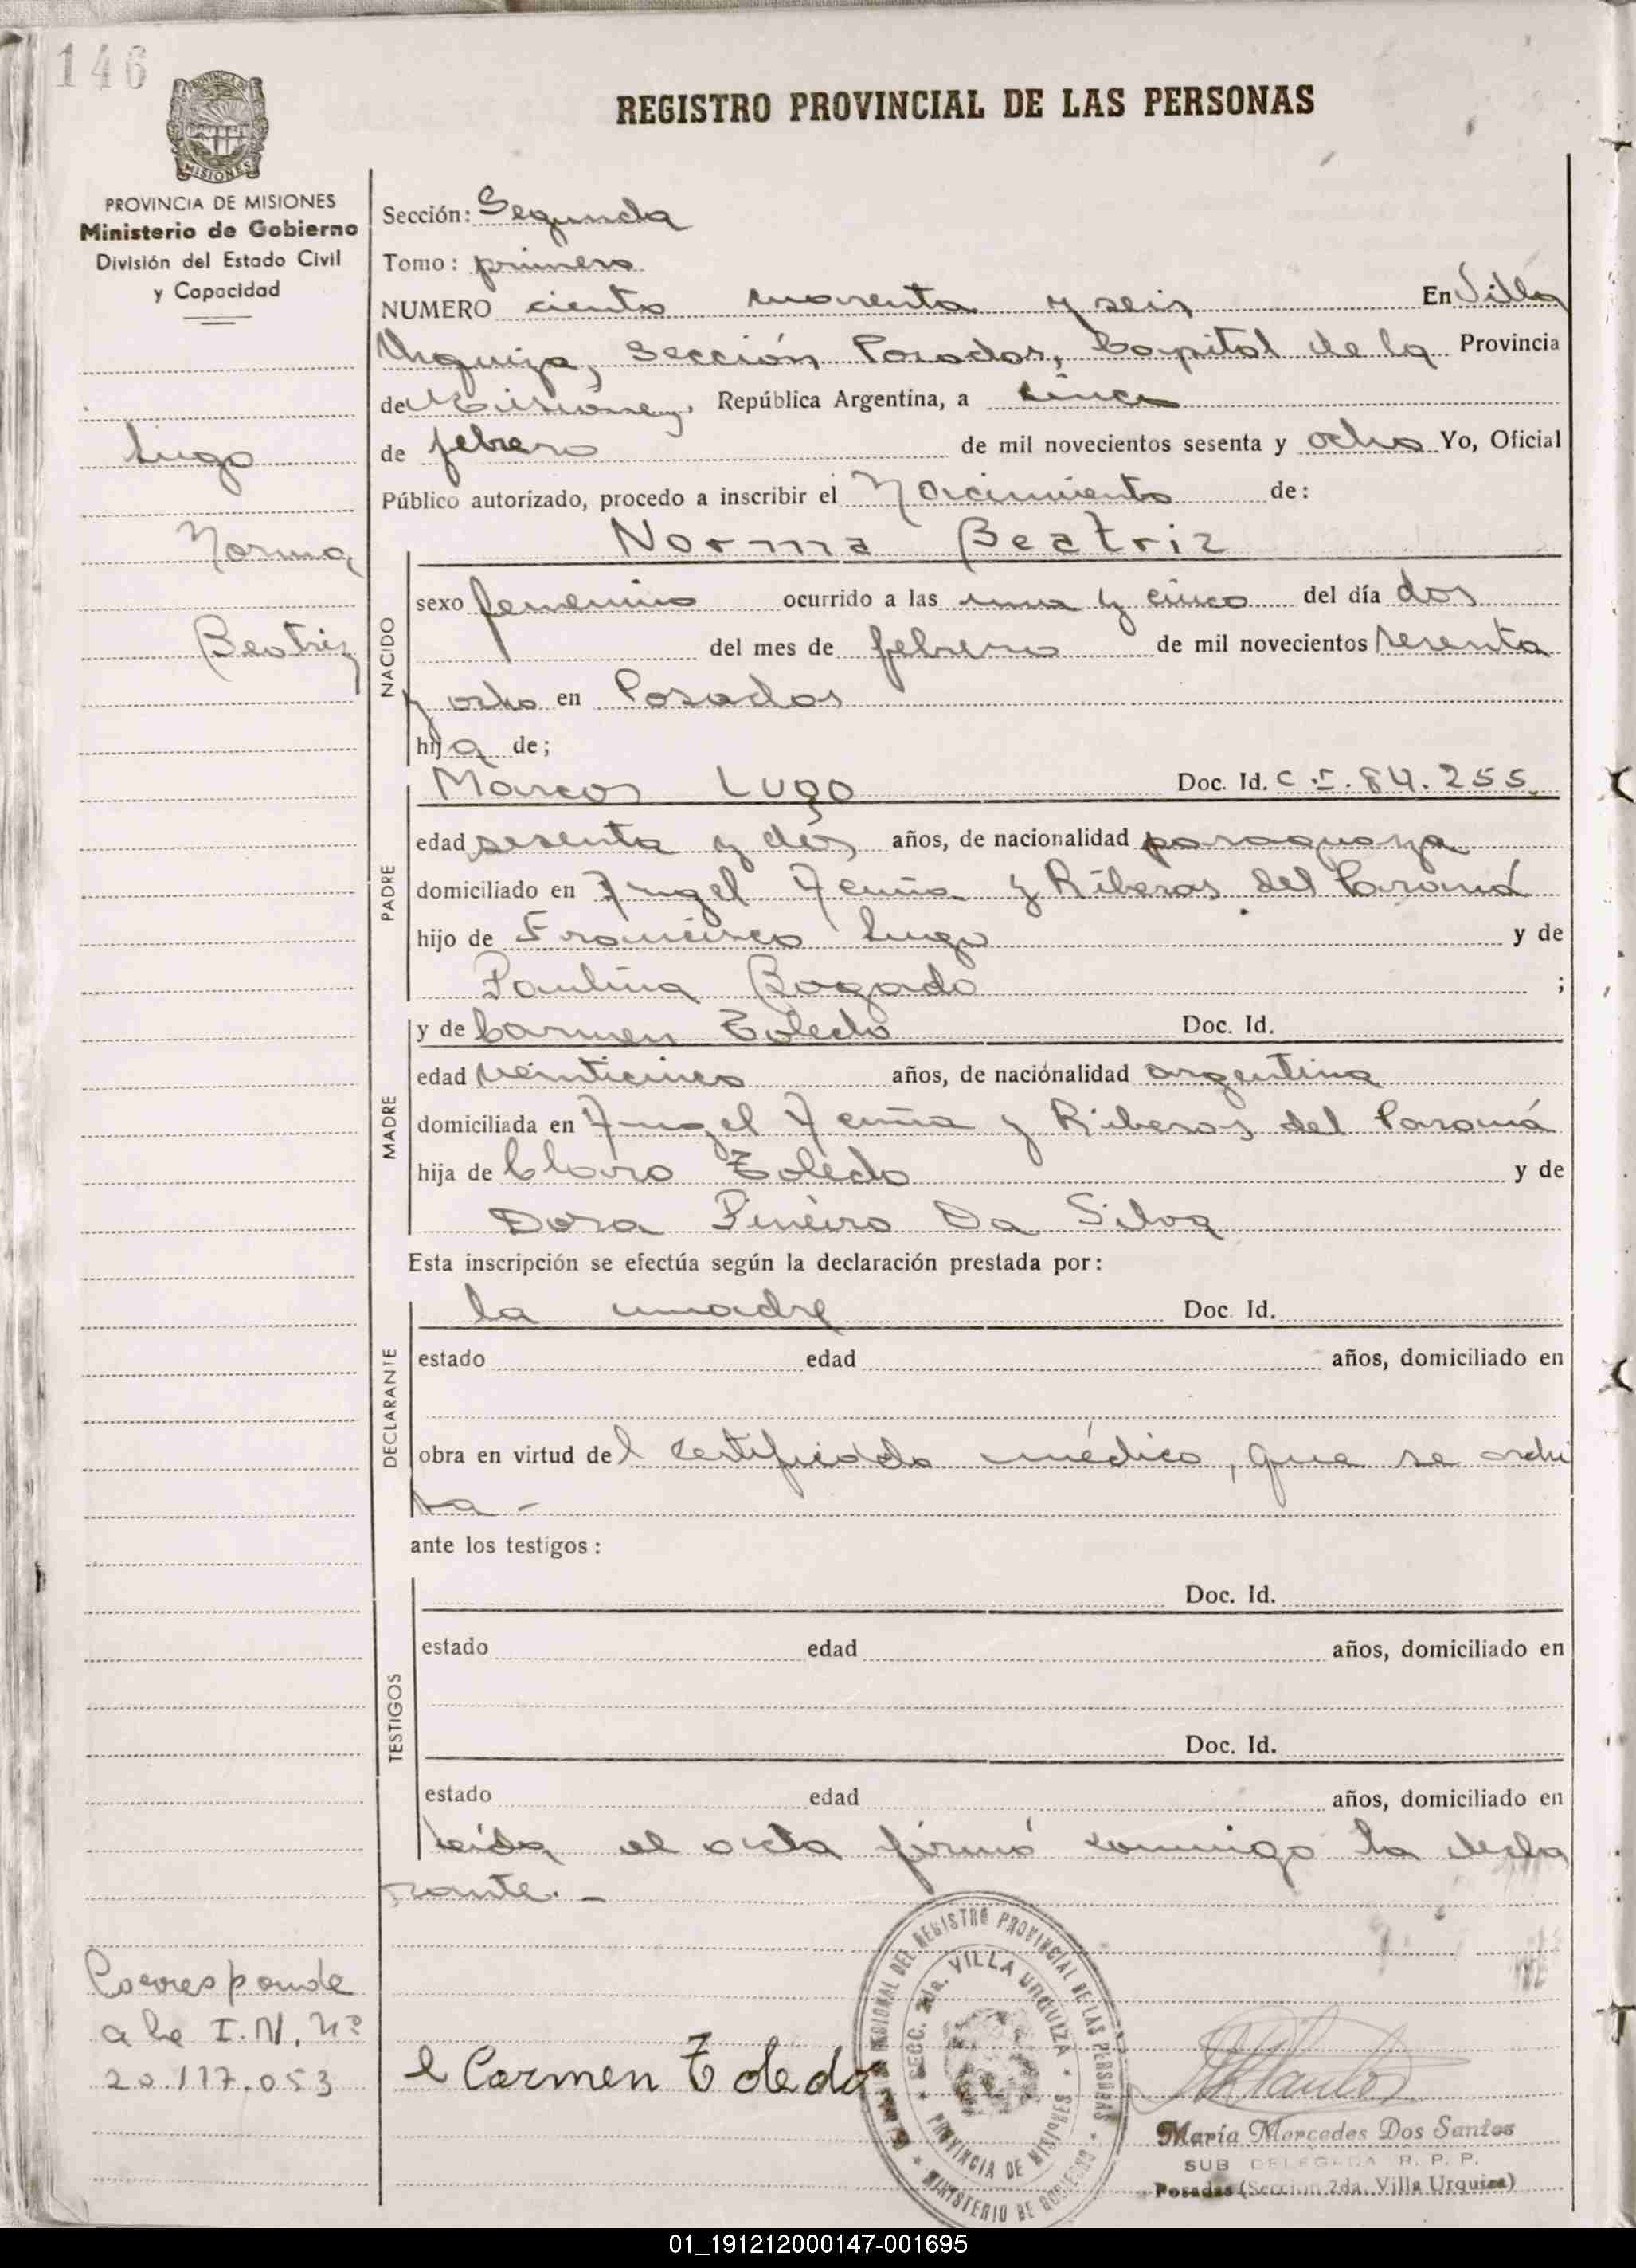 146
REGISTRO PROVINCIAL DE LAS PERSONAS
MISIONES
PROVINCIA DE MISIONES
Ministerio de Gobierno
División del Estado Civil
y Capacidad
Lugo
Norma
Beatriz
Sección: Segunda
Tomo: primero
NUMERO ciento cuarenta y seis En Villa
Urquiza, Sección Posadas, Capital de la Provincia
de Misiones, República Argentina, a cinco
de febrero de mil novecientos sesenta y ocho Yo, Oficial
Público autorizado, procedo a inscribir el Nacimiento de:
Norma Beatriz
NACIDO
sexo femenino ocurrido a las una y cinco del día dos
del mes de febrero de mil novecientos sesenta
y ocho en Posadas
hija de;
PADRE
Marcos Lugo Doc. Id. C.I. 84.255.
edad sesenta y dos años, de nacionalidad paraguaya
domiciliado en Angel Acuña y Riberas del Paraná
hijo de Francisco Lugo y de
Paulina Bogado ;
MADRE
y de Carmen Toledo Doc. Id.
edad veinticinco años, de nacionalidad argentina
domiciliada en Angel Acuña y Riberas del Paraná
hija de Claro Toledo y de
Dora Pineiro Da Silva
Esta inscripción se efectúa según la declaración prestada por:
DECLARANTE
la madre Doc. Id.
estado edad años, domiciliado en
obra en virtud del certificado médico, que se archi
va -
ante los testigos:
TESTIGOS
Doc. Id.
estado edad años, domiciliado en
Doc. Id.
estado edad años, domiciliado en
leída el acta firmó conmigo la decla
rante. -
Corresponde
a la I.N. Nº
20.117.053
Carmen Toledo
REGISTRO PROVINCIAL DE LAS PERSONAS
SECC. 2da. VILLA URQUIZA
PROVINCIA DE MISIONES
MINISTERIO DE GOBIERNO
María Mercedes Dos Santos
SUB DELEGADA R. P. P.
Posadas (Sección 2da. Villa Urquiza)
01_191212000147-001695